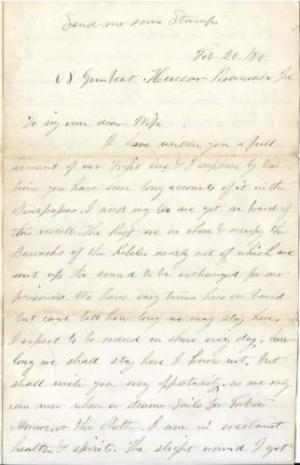 Send me some Stamps
Feb 20, 186
US Gunboat Hussar Roanoke Isl
To my own dear Wife
I have written you a full
account of our fight here & I suppose by this
time you have seen long accounts of it in the
Newspapers. I and my Co are yet on board of
this vessel. The Regt are on shore & occupy the
Barracks of the Rebels nearly all of which are
sent up the sound to be exchanged for our
prisoners. We have easy times here on board
but can't tell how long we may stay here.
I expect to be ordered on shore every day. how
long we shall stay here I know not. but
shall write you every oppotunity. as we only
can now when a steamer Sails for Fortress
Monroe, or the North. I am in excelant
health & spirits. The slight wound I got